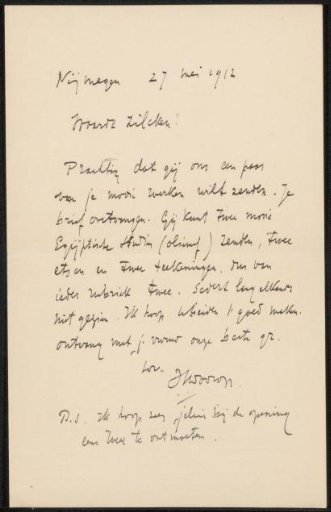 Nijmegen 27 mei 1912
Waarde Zilcken!
Prachtig dat gij ons een paar
van je mooie werken wilt zenden. Je
brief ontvangen. Gij kunt twee mooie
Egyptische studies (olieverf) zenden, twee
etsen en twee teekeningen, dus van
ieder rubriek twee. Sedert lang elkaar
niet gezien. Ik hoop beiden 't goed maken.
ontvang met je vrouw onze beste gr.
JThToorop
P.S. Ik hoop zeer jelui bij de opening
eens weer te ontmoeten.